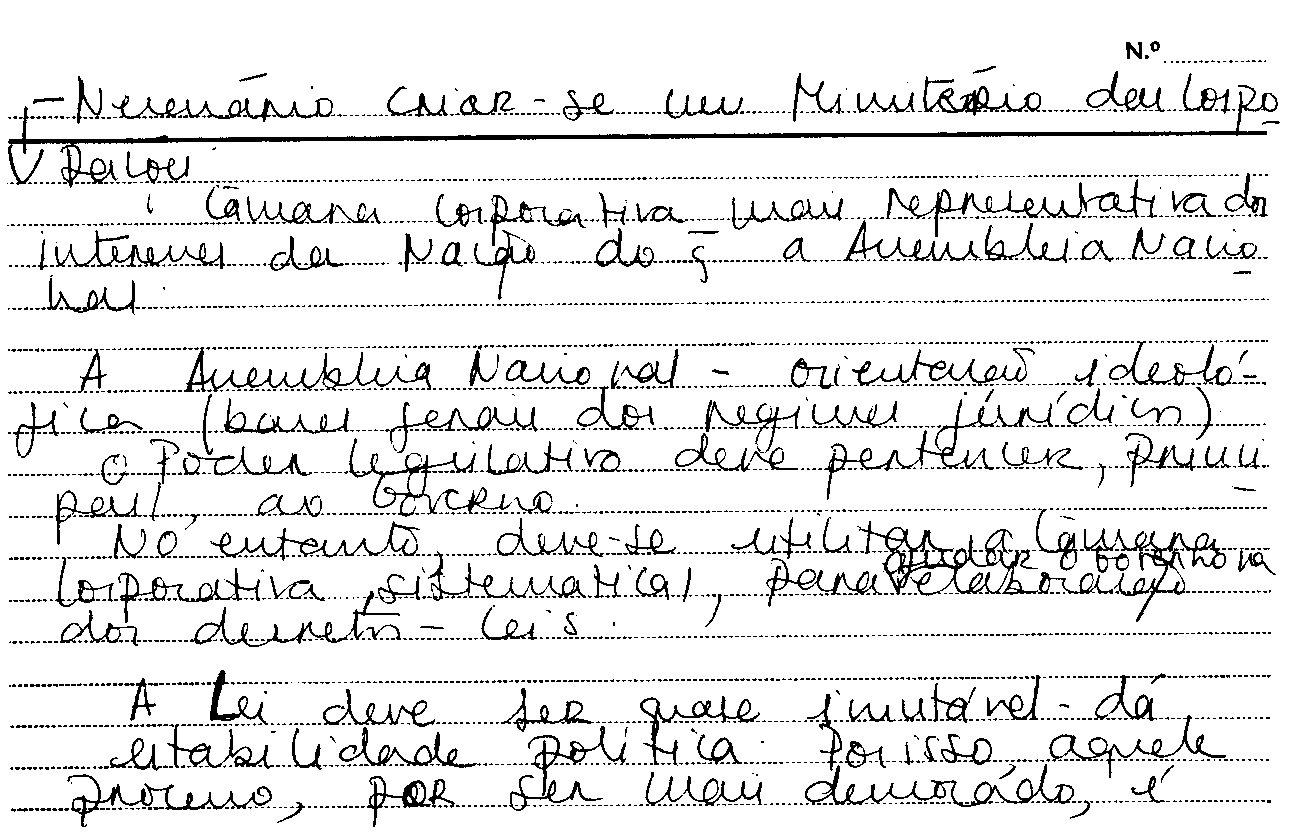 N.º
- Necessário criar-se um Ministério das Corpo
rações
Câmara Corporativa mais representativa dos
interesses da Nação do q̃ a Assembleia Nacio
nal.
A Assembleia Nacional - orientação ideoló-
gica (bases gerais dos regimes jurídicos)
O Poder legislativo deve pertencer, princi
pal/, ao Governo.
No entanto, deve-se utilizar a Câmara
ajudar o Governo na
Corporativa, sistematica/, para elaboração
dos decretos-leis.
A Lei deve ser quase imutável - dá
estabilidade política. Por isso, aquele
processo, por ser mais demorado, é